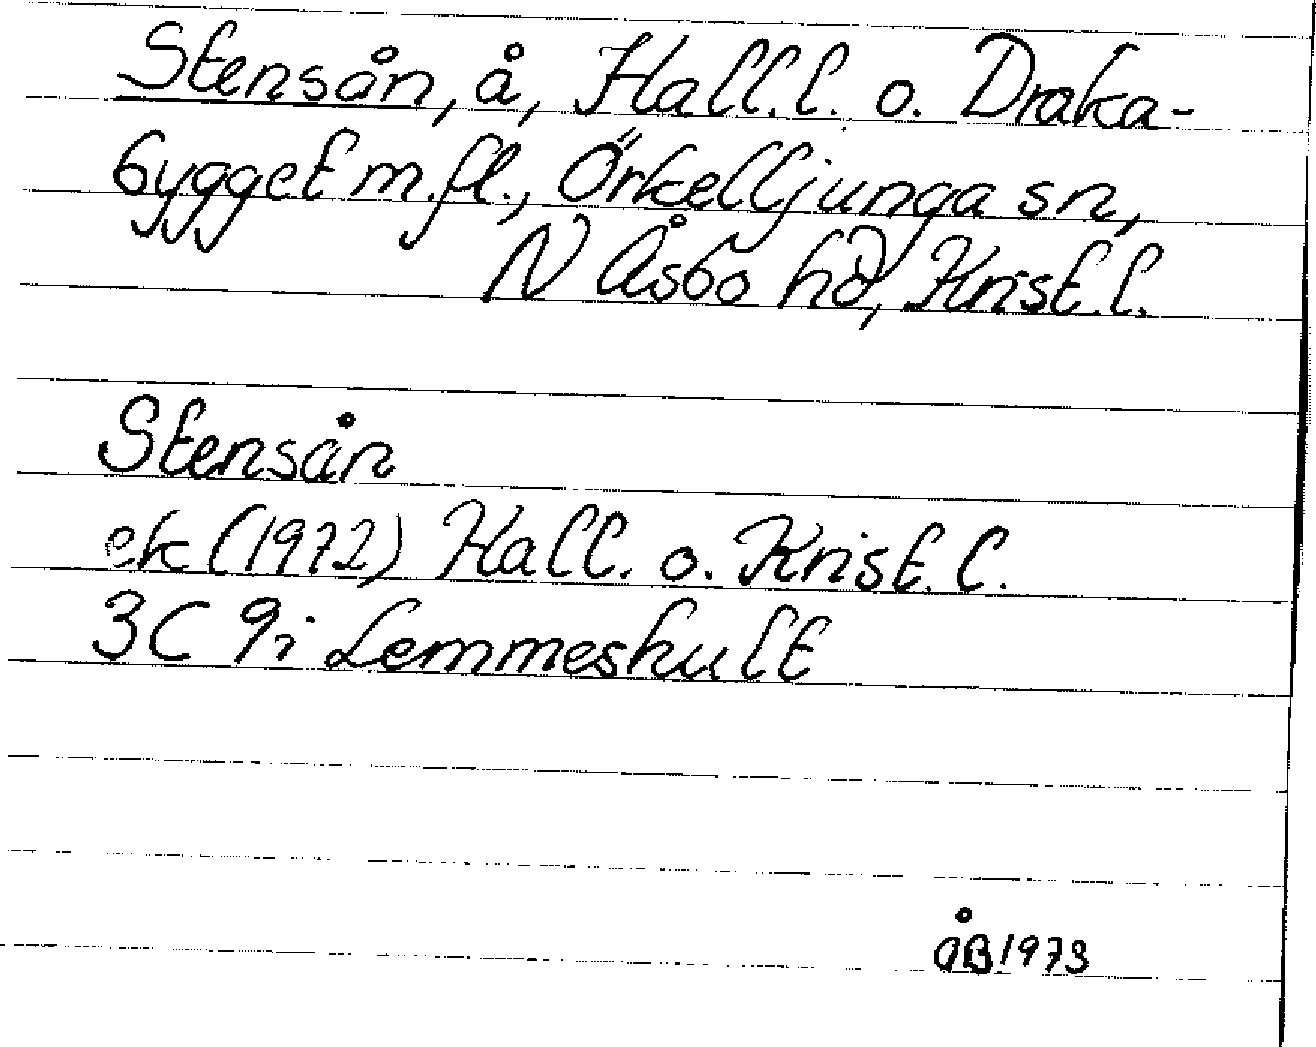 Stensån, å, Hall. l. o. Draka-
bygget m.fl., Örkelljunga sn,
N Åsbo hd, Krist. l.
Stensån
ek (1972) Hall. o. Krist. l.
3C 9i Lemmeshult
ÅB 1973